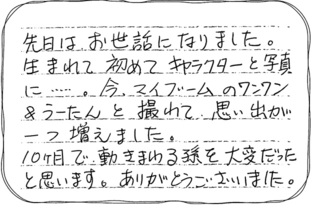 先日は、お世話になりました。
生まれて初めてキャラクターと写真
に……。今、マイブームのワンワン
&うーたんと撮れて思い出が
一つ増えました。
10ヶ月で動きまわる孫を大変だった
と思います。ありがとうございました。